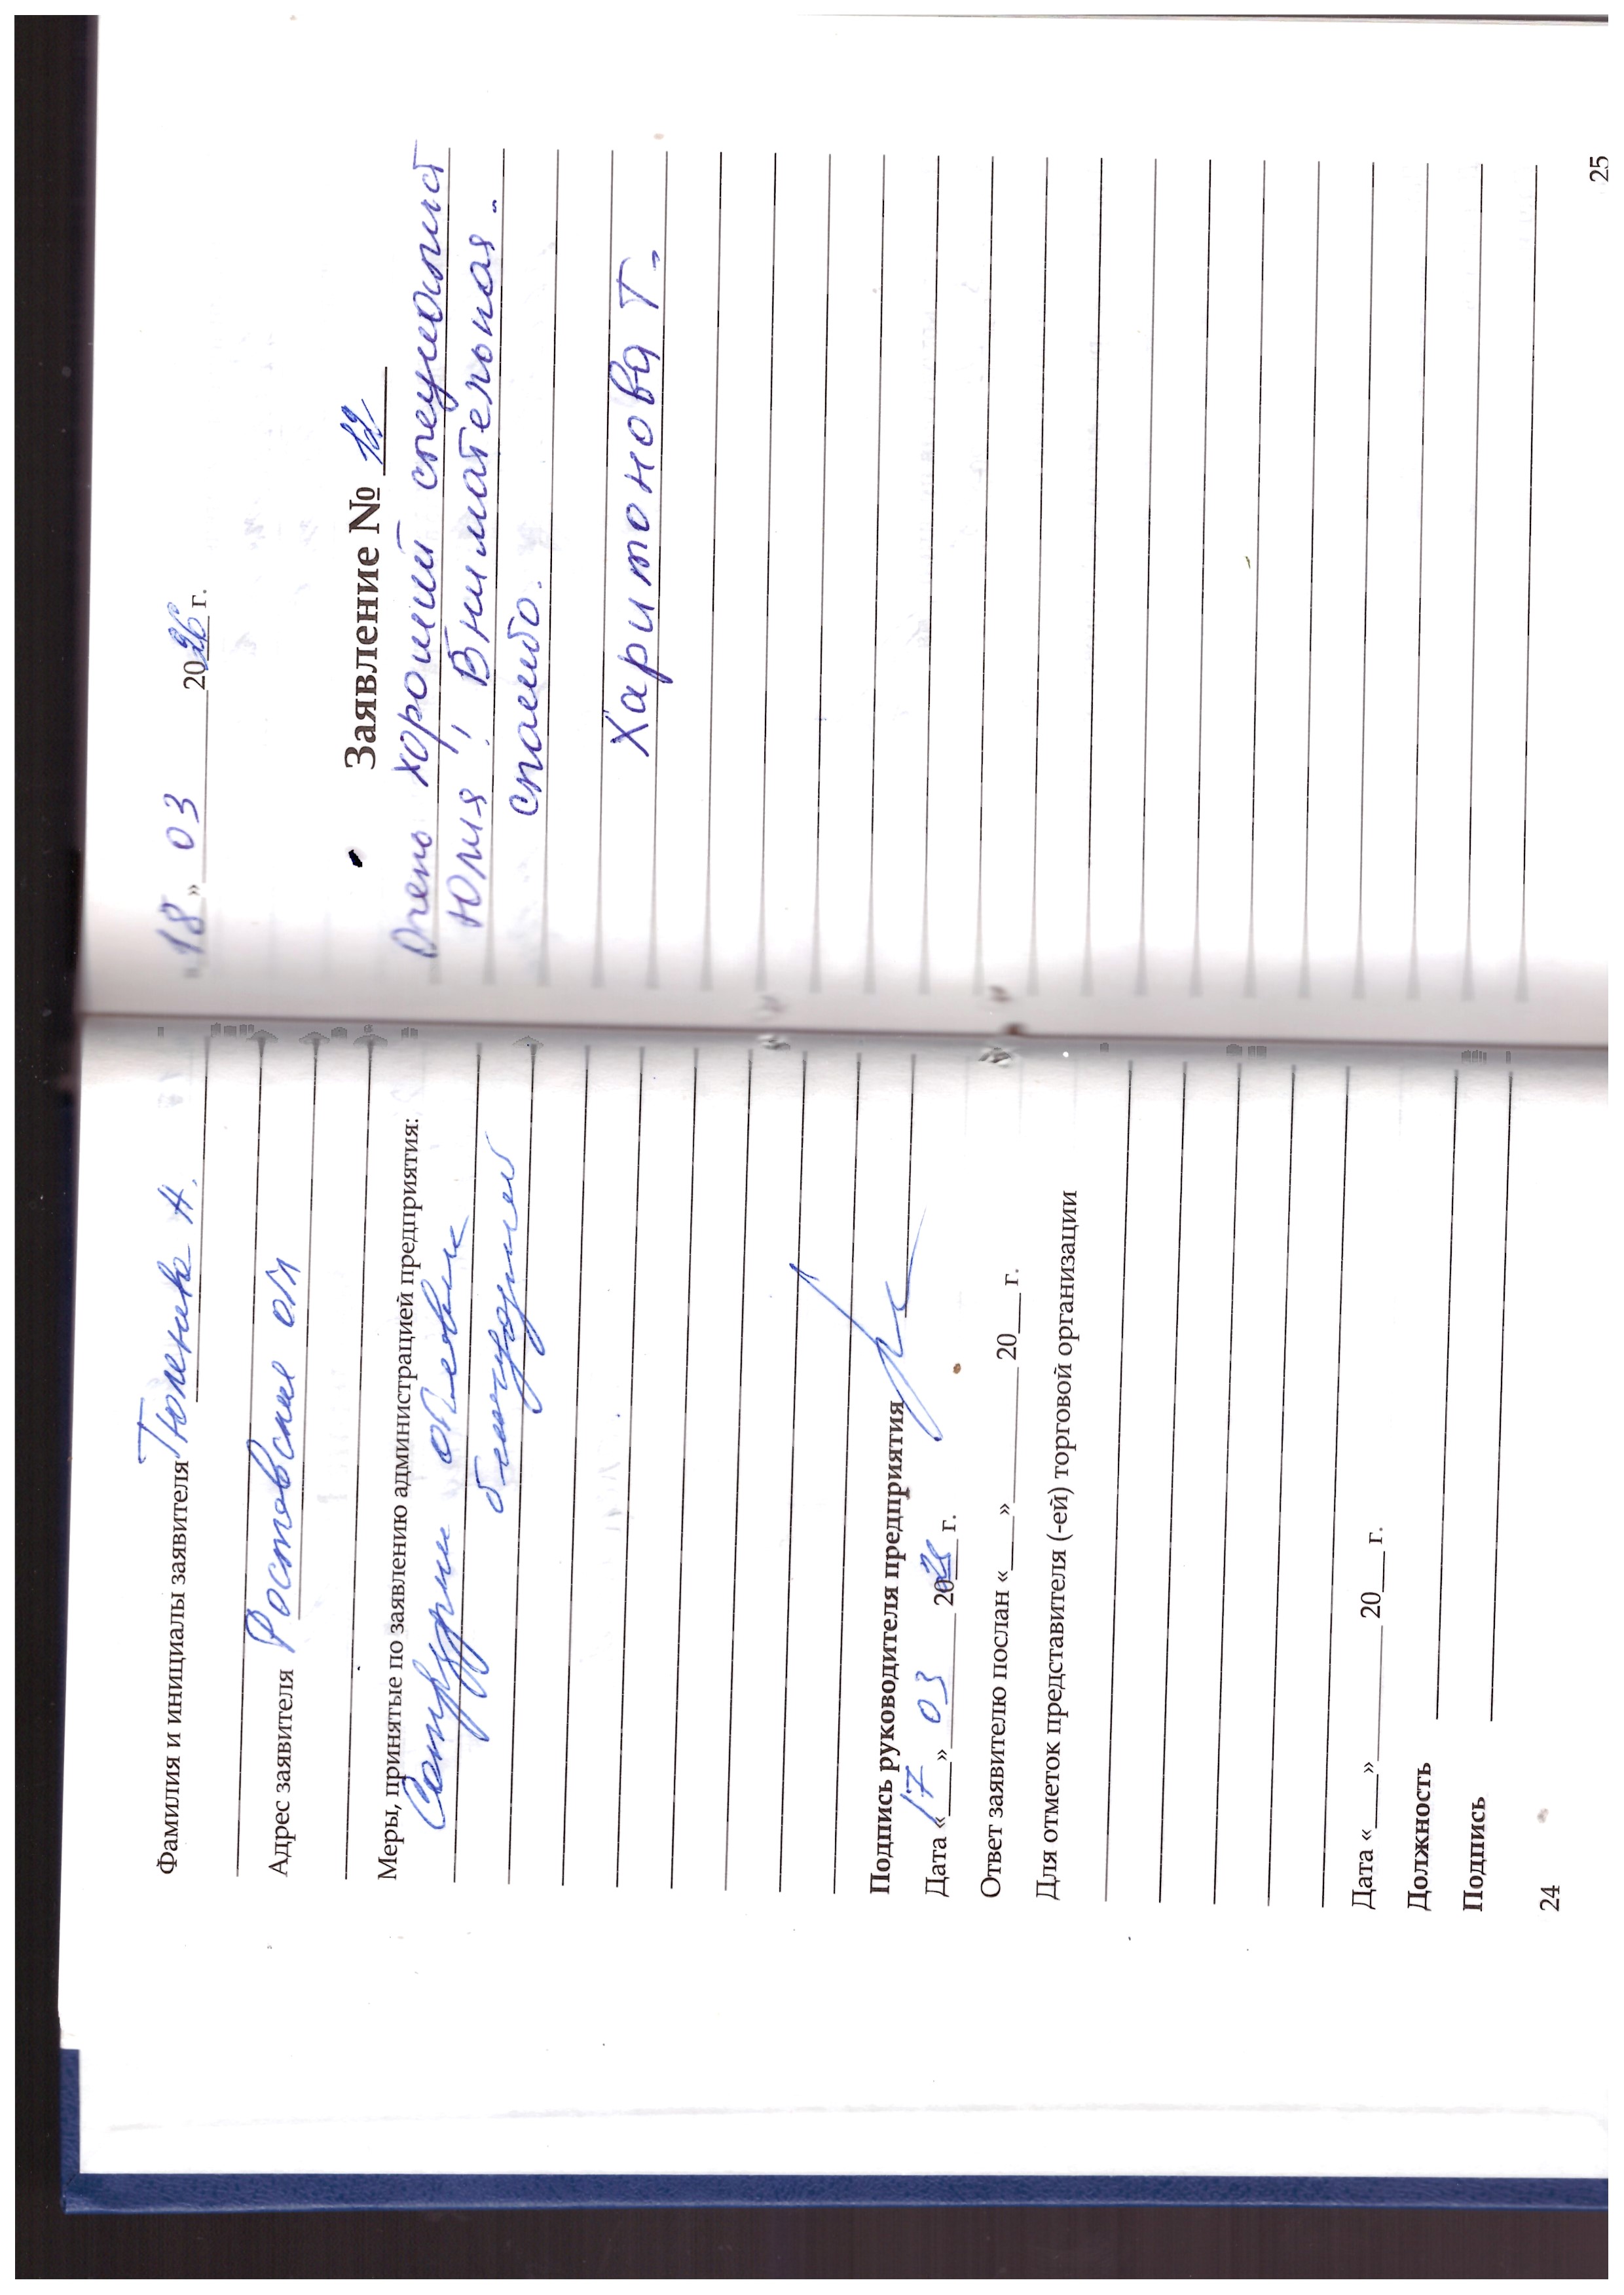 Фамилия и инициалы заявителя Тюленева Н.
Адрес заявителя Ростовская обл
Меры, принятые по заявлению администрацией предприятия:
Сотруднику объявлена
благодарность
Подпись руководителя предприятия
Дата «17» 03 2026 г.
Ответ заявителю послан «___»________ 20___ г.
Для отметок представителя (-ей) торговой организации
Дата «___»________ 20___ г.
Должность
Подпись
24
«18» 03 2026 г.
Заявление № 12
Очень хороший специалист
Юлия! Внимательная.
спасибо.
Харитонова Т.
25